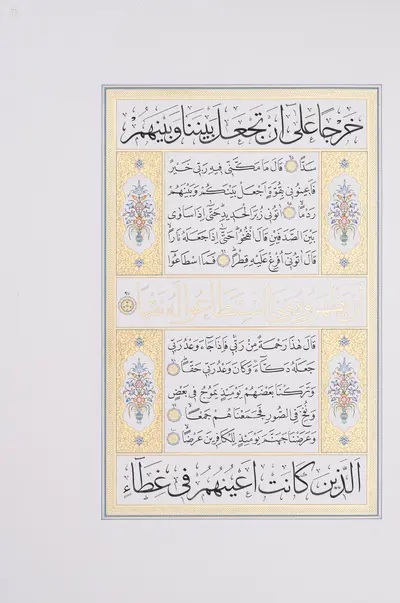 خَرْجًا عَلَىٰ أَنْ تَجْعَلَ بَيْنَنَا وَبَيْنَهُمْ
سَدًّا قَالَ مَا مَكَّنِّي فِيهِ رَبِّي خَيْرٌ
فَأَعِينُونِي بِقُوَّةٍ أَجْعَلْ بَيْنَكُمْ وَبَيْنَهُمْ
رَدْمًا اٰتُونِي زُبَرَ الْحَدِيدِ حَتَّىٰ إِذَا سَاوَىٰ
بَيْنَ الصَّدَفَيْنِ قَالَ انْفُخُوا حَتَّىٰ إِذَا جَعَلَهُ نَارًا
قَالَ اٰتُونِي أُفْرِغْ عَلَيْهِ قِطْرًا فَمَا اسْطَاعُوا
أَنْ يَظْهَرُوهُ وَمَا اسْتَطَاعُوا لَهُ نَقْبًا
قَالَ هَٰذَا رَحْمَةٌ مِنْ رَبِّي فَإِذَا جَاءَ وَعْدُ رَبِّي
جَعَلَهُ دَكَّاءَ وَكَانَ وَعْدُ رَبِّي حَقًّا
وَتَرَكْنَا بَعْضَهُمْ يَوْمَئِذٍ يَمُوجُ فِي بَعْضٍ
وَنُفِخَ فِي الصُّورِ فَجَمَعْنَاهُمْ جَمْعًا
وَعَرَضْنَا جَهَنَّمَ يَوْمَئِذٍ لِلْكَافِرِينَ عَرْضًا
الَّذِينَ كَانَتْ أَعْيُنُهُمْ فِي غِطَاءٍ